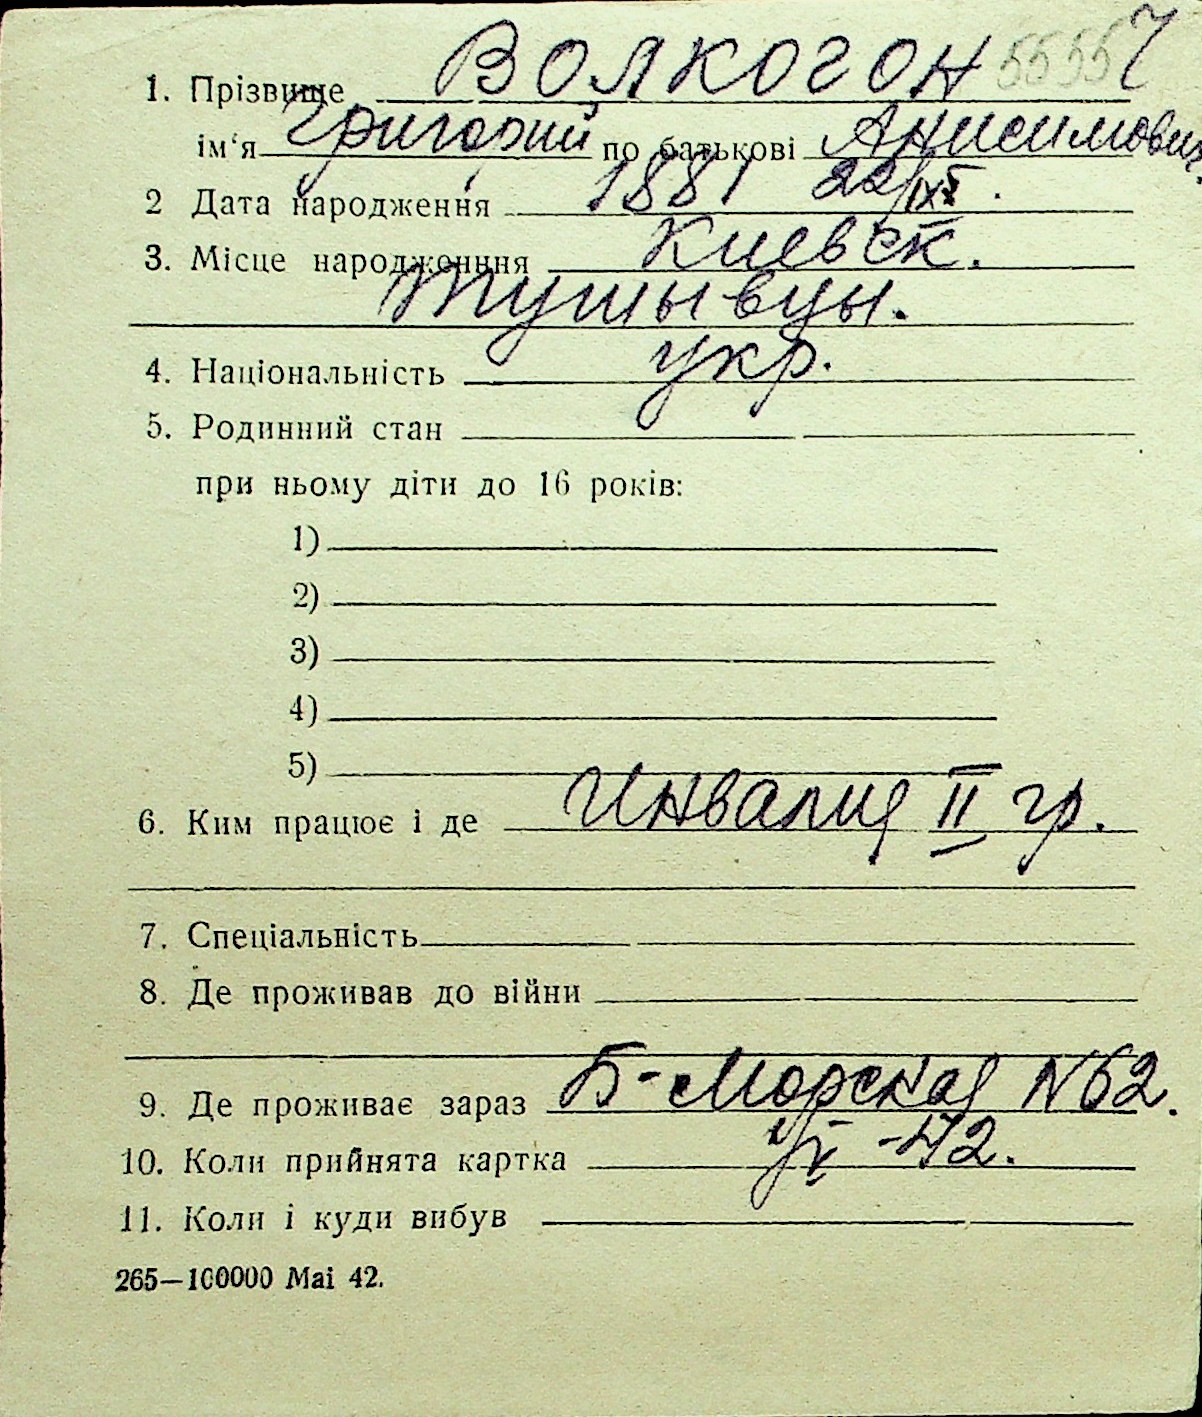 1. Прізвище ВОЛКОГОН 5555 7
ім‘я Григорий по батькові Анисимович.
2 Дата народження 1881 22/IX.
3. Місце народженння Киевск.
Тушывцы.
4. Національність укр.
5. Родинний стан
при ньому діти до 16 років:
1)
2)
3)
4)
5)
6. Ким працює і де Инвалид II гр.
7. Спеціальність
8. Де проживав до війни
9. Де проживає зараз Б-Морская N62.
10. Коли прийнята картка -42.
11. Коли і куди вибув
265—100000 Mai 42.